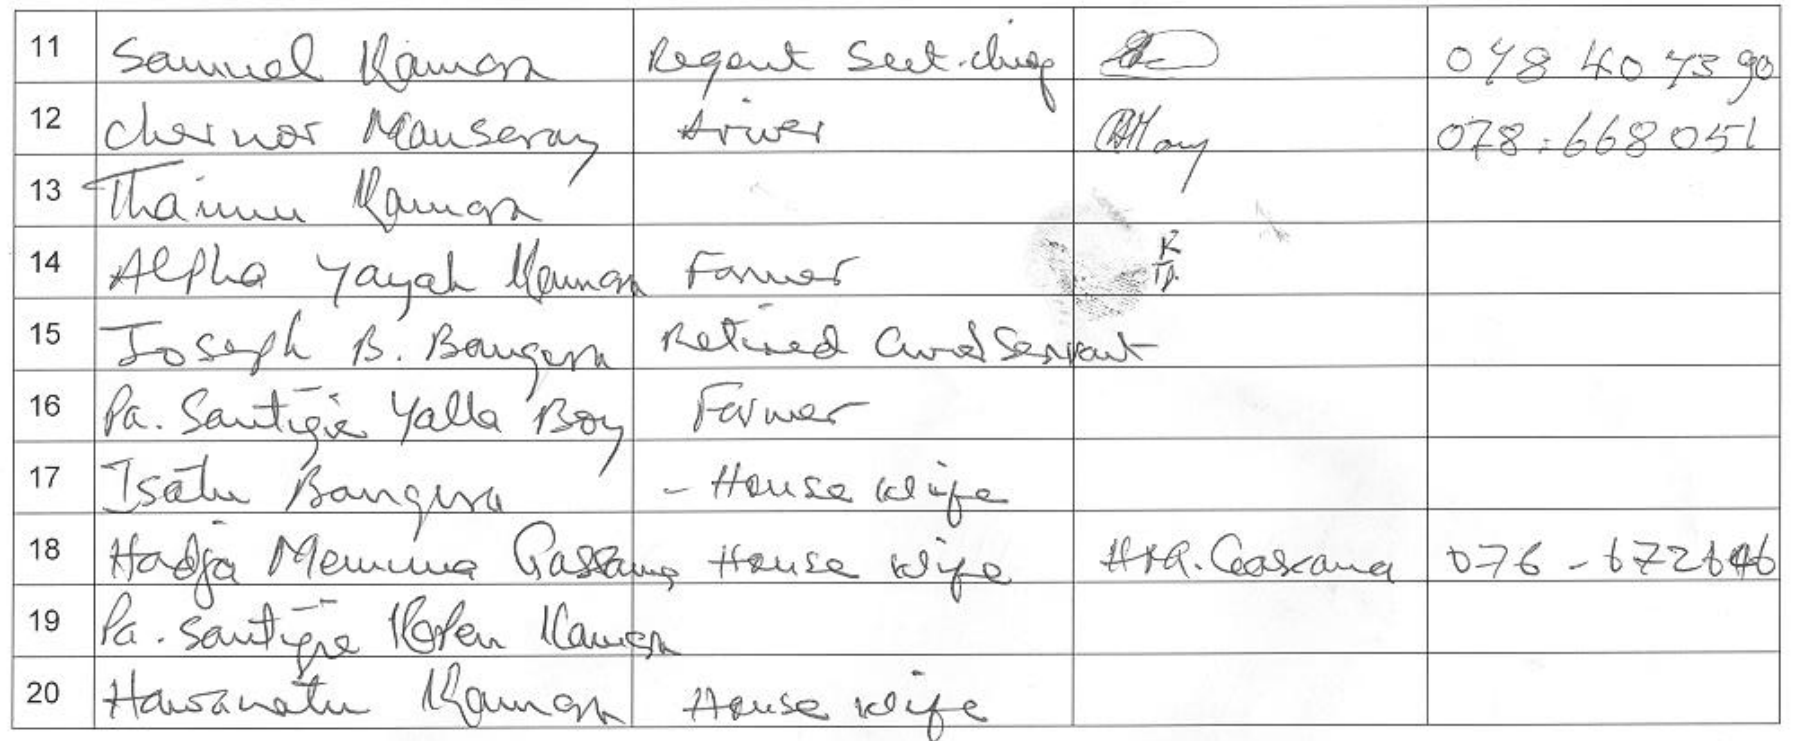 11 Samuel Kamara Regent Sect. chief 078 40 73 90
12 Chernor Mansaray driver 078-668051
13 Thaimu Kamara
14 Alpha Yayah Kamara Farmer
15 Joseph B. Bangura Retired Civil Servant
16 Pa. Santigie Yalla Boy Farmer
17 Isatu Bangura - House Wife
18 Hadja Memuna Gassama House Wife 076-672646
19 Pa. Santigie Kamara
20 Hawanatu Kamara House Wife